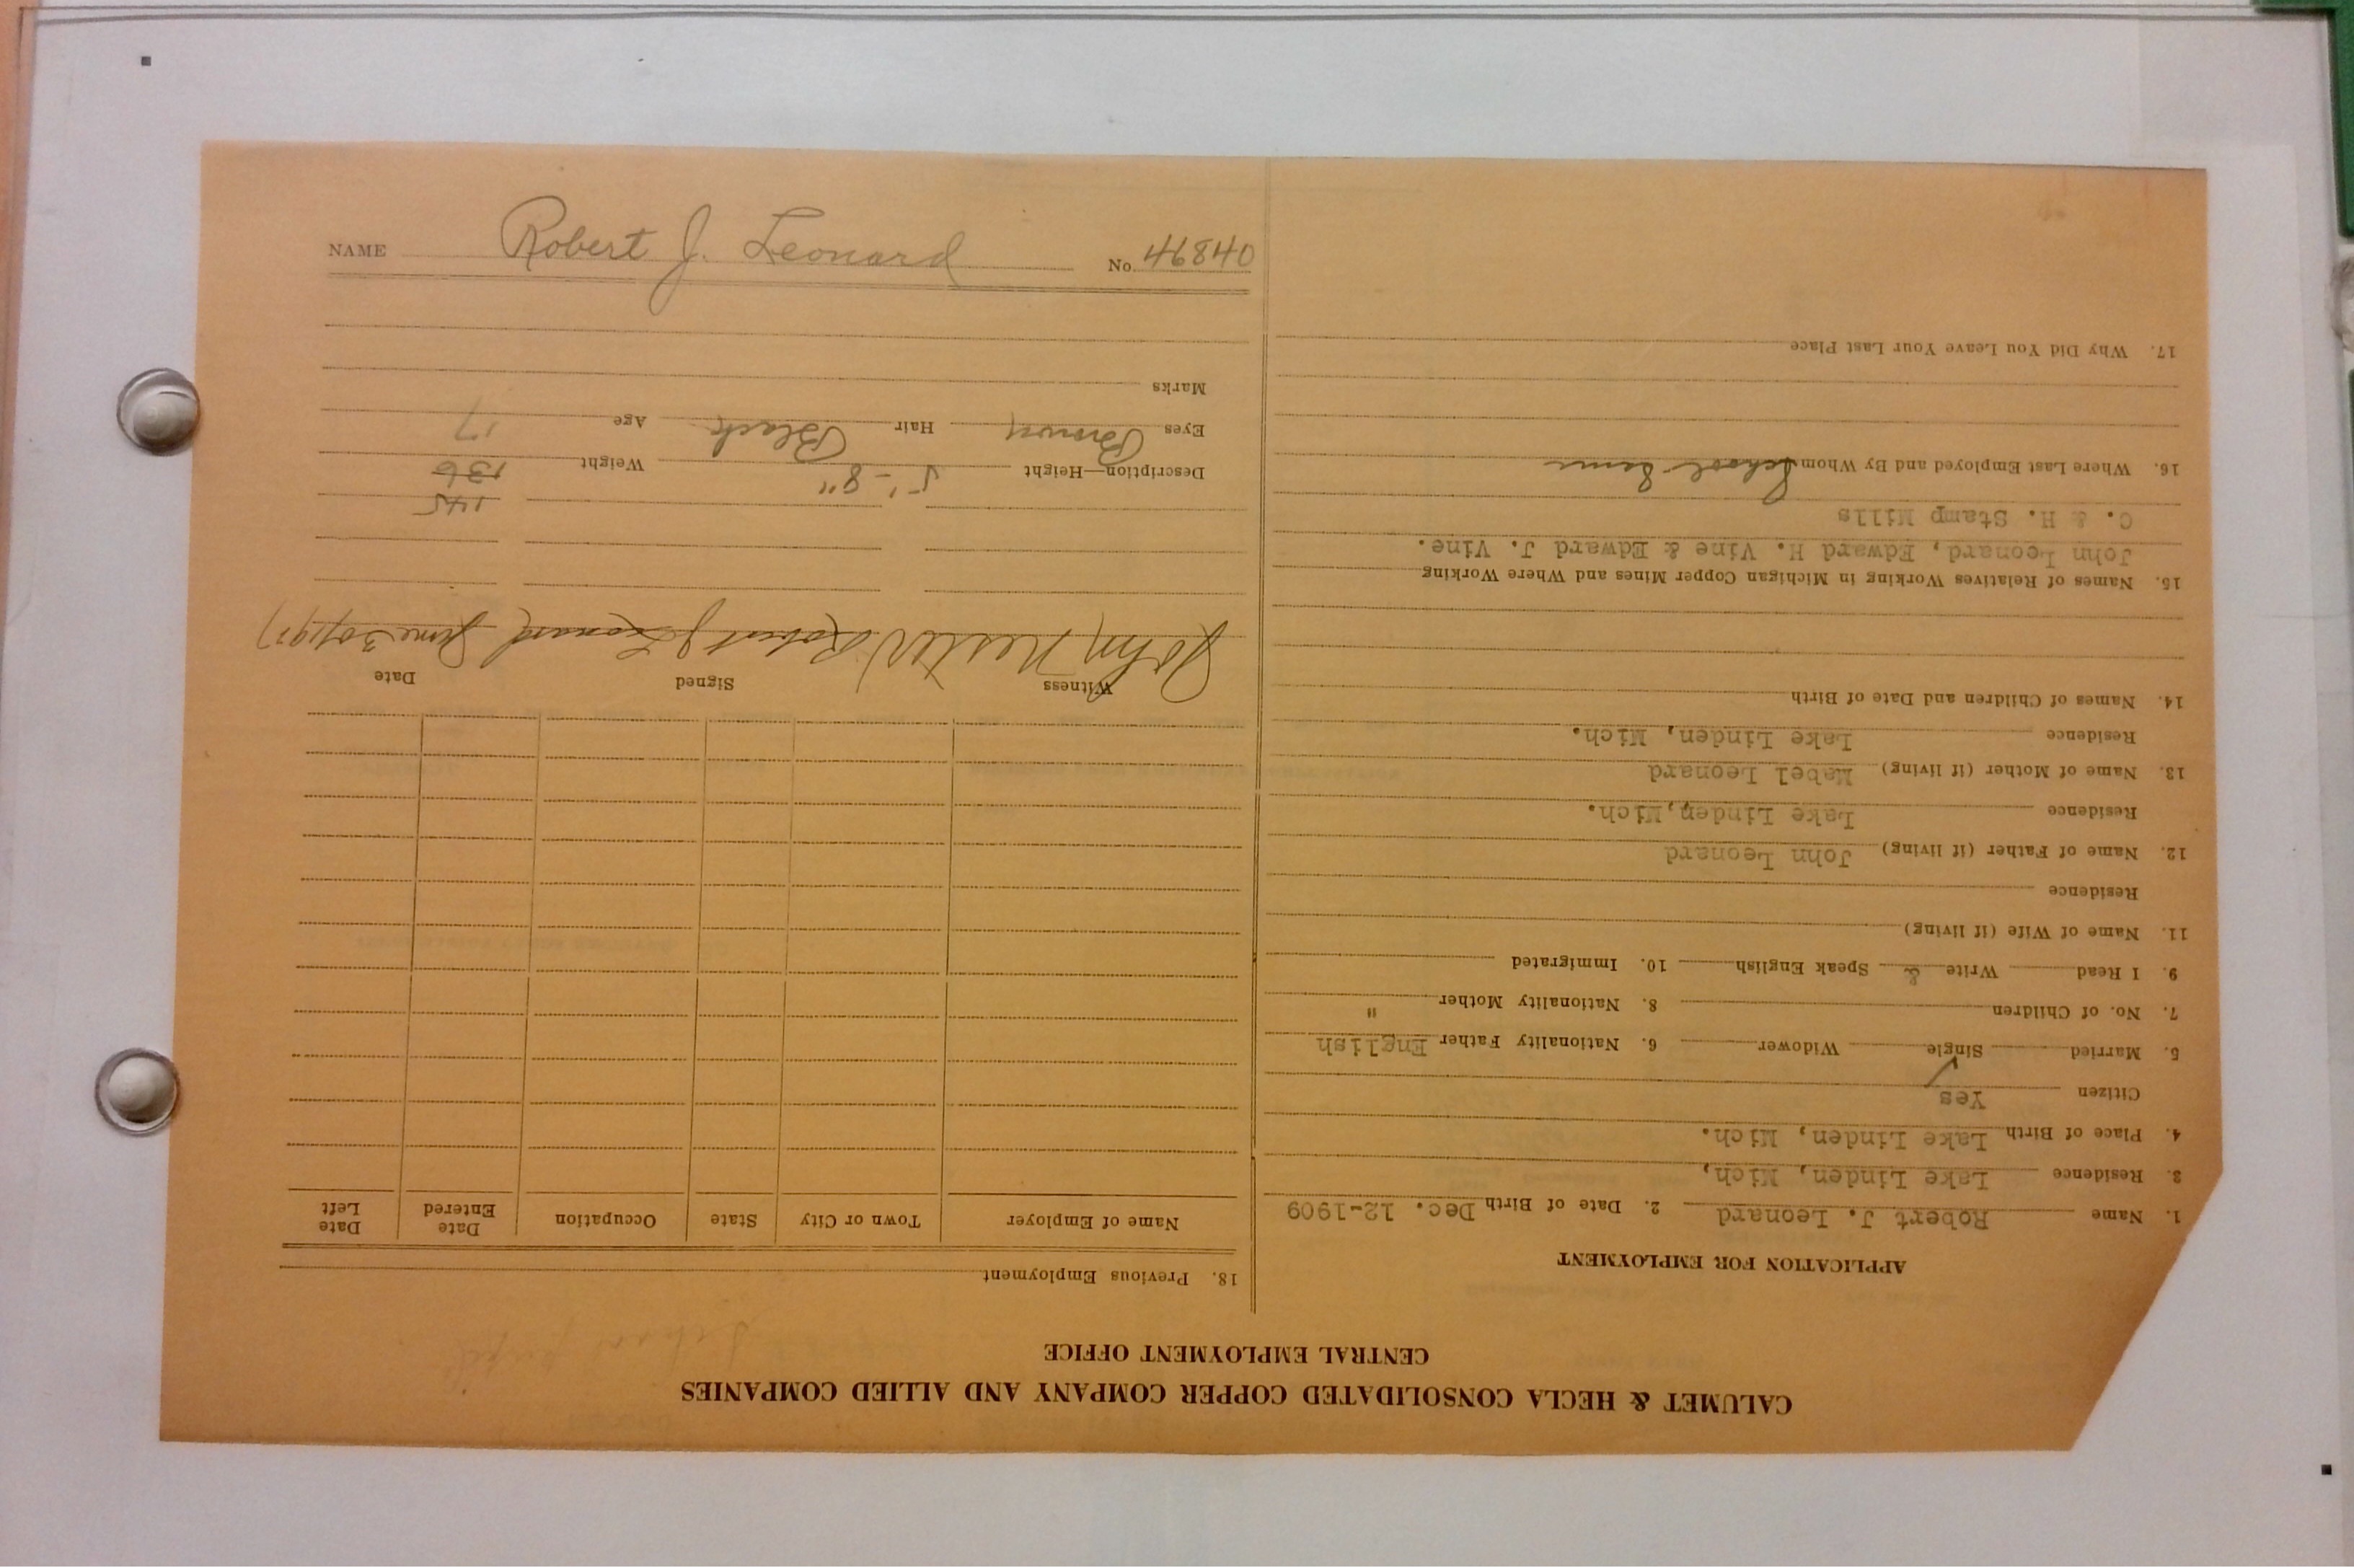 CALUMET & HECLA CONSOLIDATED COPPER COMPANY AND ALLIED COMPANIES
CENTRAL EMPLOYMENT OFFICE
APPLICATION FOR EMPLOYMENT
1. Name Robert J. Leonard 2. Date of Birth Dec. 12-1909
3. Residence Lake Linden, Mich,
4. Place of Birth Lake Linden, Mich.
Citizen Yes
5. Married Single ✓ Widower 6. Nationality Father English
7. No. of Children 8. Nationality Mother "
9. I Read Write & Speak English 10. Immigrated
11. Name of Wife (if living)
Residence
12. Name of Father (if living) John Leonard
Residence Lake Linden, Mich.
13. Name of Mother (if living) Mabel Leonard
Residence Lake Linden, Mich.
14. Names of Children and Date of Birth
15. Names of Relatives Working in Michigan Copper Mines and Where Working
John Leonard, Edward H. Vine & Edward J. Vine.
C. & H. Stamp Mills
16. Where Last Employed and By Whom School
17. Why Did You Leave Your Last Place
18. Previous Employment
Name of Employer Town or City State Occupation Date Entered Date Left
Witness Signed Date
John Robert J Leonard June 30/1927
145
Description—Height 5'-8" Weight 136
Eyes Brown Hair Black Age 17
Marks
NAME Robert J. Leonard No. 46840